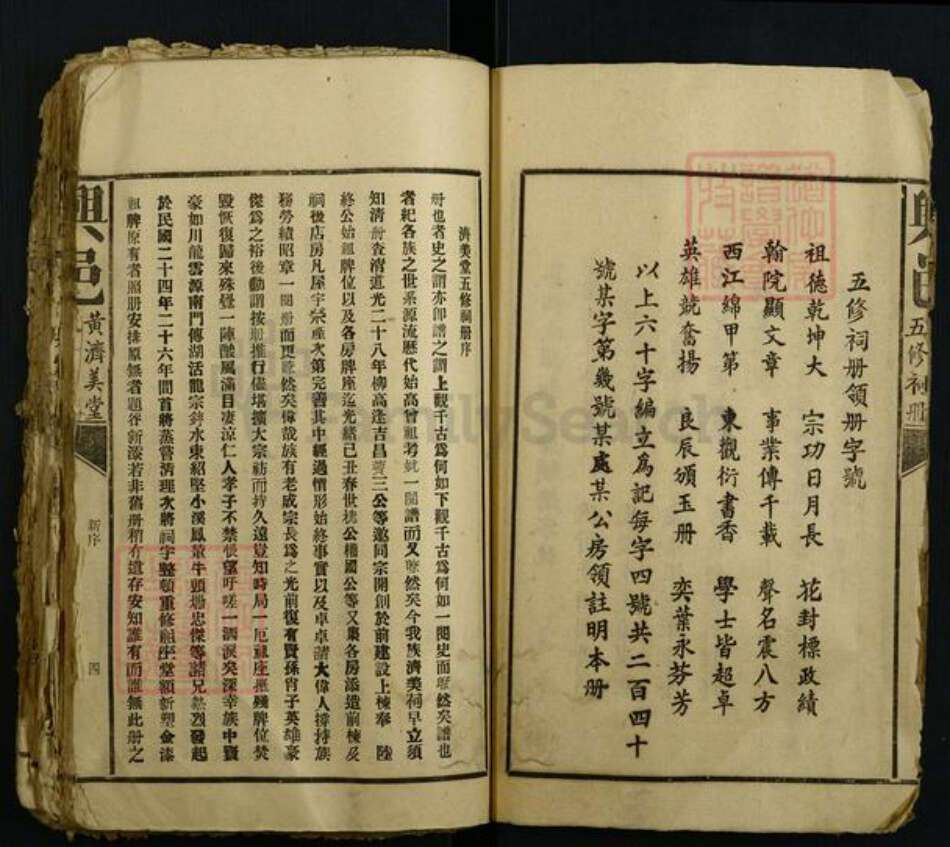 興邑
五修祠册
五修祠册領册字號
祖德乾坤大 宗功日月長 花封標政績
翰院顯文章 事業傳千載 聲名震八方
西江綿甲第 東觀衍書香 學士皆超卓
英雄競奮揚 良辰頒玉册 奕葉永芬芳
以上六十字編立爲記每字四號共二百四十
號某字第幾號某處某公房領註明本册
濟美堂五修祠册序
册也者史之謂亦卽譜之謂上觀千古爲何如下觀千古爲何如一閱史而瞭然矣譜也
者紀各族之世系源流歷代始高曾祖考妣一閱譜而又瞭然矣今我族濟美祠早立須
知清册查清道光二十八年柳高逢吉昌 三公等邀同宗開創於前建設上棟奉 陸
終公始祖牌位以及各房牌座迄光緒己丑春世 公 國公等又集各房添造前棟及
祠後店房凡屋宇 產次第完善其中經過情形始終事實以及卓卓諸大偉人撐持族
務勞績昭章一閱册而更瞭然矣偉哉族有老成宗長爲之光前復有賢孫胄子英雄豪
傑爲之裕後動謂按册推行儘堪擴大宗祊而持久遠豈知時局一厄祖座摧殘牌位焚
毀恢復歸來殊發一陣酸風滿目凄凉仁人孝子不禁悵望吁嗟一洒淚矣深幸族中賢
豪如川龍雲源南門傳湖活龍宗 水東紹堅小溪鳳 牛頭 忠傑等諸兄熱烈發起
於民國二十四年二十六年間首將蒸嘗清理次將祠宇整頓重修祖座堂額新塑金漆
祖牌原有者照册安排原無者題 新添若非舊册稍有遺存安知誰有而誰無此册之
興邑
黃濟美堂
新序
四